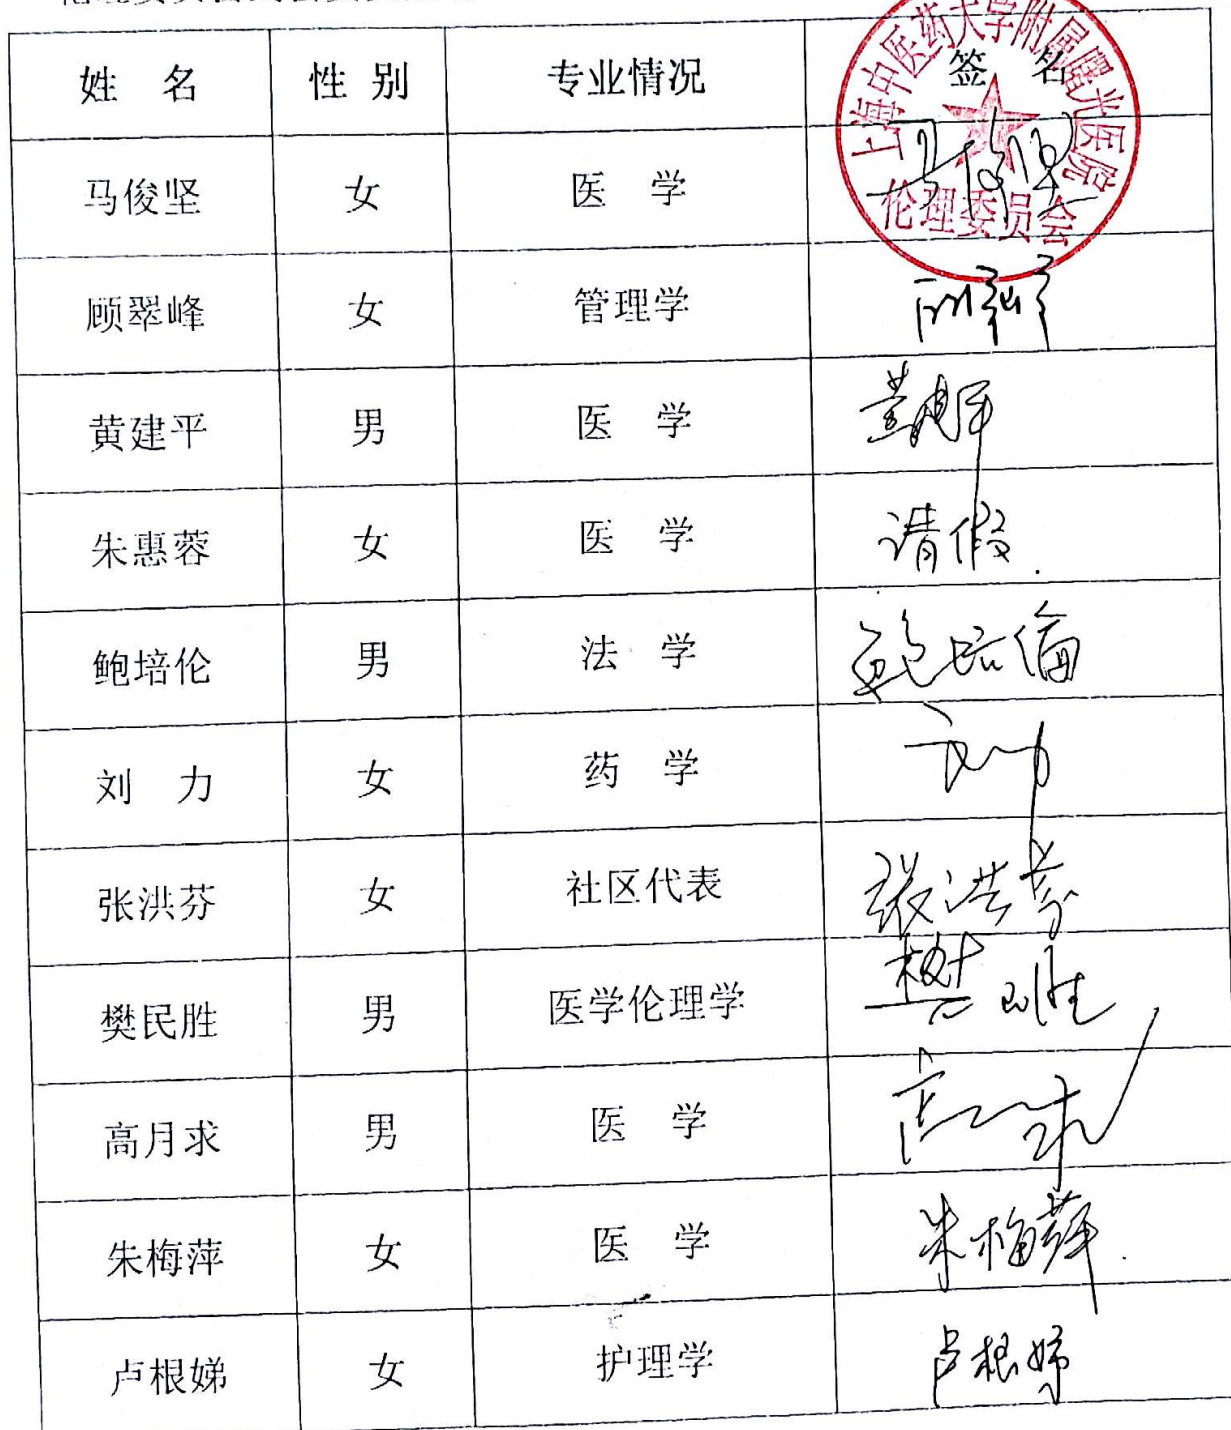 姓 名 性 别 专业情况 签 名
上海中医药大学附属曙光医院
伦理委员会
马俊坚 女 医 学 马俊坚
顾翠峰 女 管理学
黄建平 男 医 学 黄建平
朱惠蓉 女 医 学 请假.
鲍培伦 男 法 学 鲍培倫
刘 力 女 药 学 刘力
张洪芬 女 社区代表 张洪芬
樊民胜 男 医学伦理学 樊民胜
高月求 男 医 学 高月求
朱梅萍 女 医 学 朱梅萍.
卢根娣 女 护理学 卢根娣